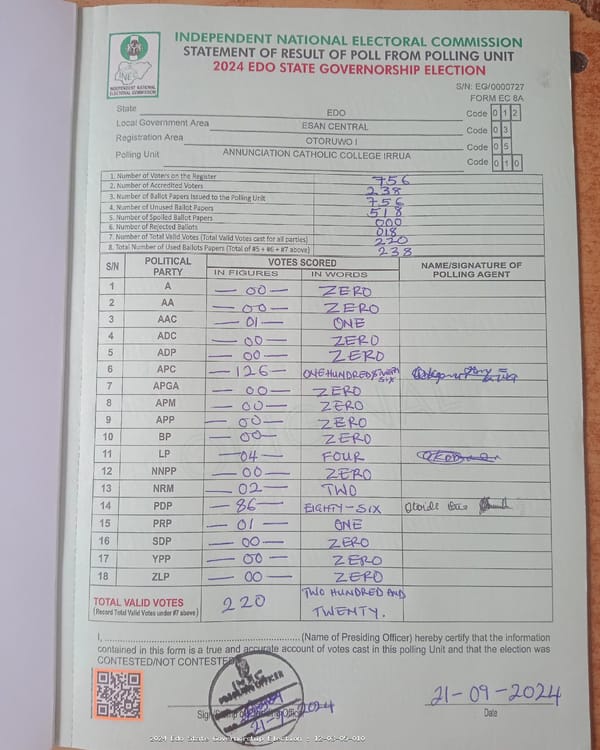 INDEPENDENT NATIONAL ELECTORAL COMMISSION
STATEMENT OF RESULT OF POLL FROM POLLING UNIT
2024 EDO STATE GOVERNORSHIP ELECTION
INEC
INDEPENDENT NATIONAL
ELECTORAL COMMISSION
S/N: EG/0000727
FORM EC 8A
State EDO Code 0 1 2
Local Government Area ESAN CENTRAL Code 0 3
Registration Area OTORUWO I Code 0 5
Polling Unit ANNUNCIATION CATHOLIC COLLEGE IRRUA Code 0 1 0
1. Number of Voters on the Register 756
2. Number of Accredited Voters 238
3. Number of Ballot Papers Issued to the Polling Unit 756
4. Number of Unused Ballot Papers 518
5. Number of Spoiled Ballot Papers 000
6. Number of Rejected Ballots 018
7. Number of Total Valid Votes (Total Valid Votes cast for all parties) 220
8. Total Number of Used Ballots Papers (Total of #5 + #6 + #7 above) 238
S/N POLITICAL PARTY VOTES SCORED NAME/SIGNATURE OF POLLING AGENT
IN FIGURES IN WORDS
1 A — 00 — ZERO
2 AA — 00 — ZERO
3 AAC — 01 — ONE
4 ADC — 00 — ZERO
5 ADP — 00 — ZERO
6 APC — 126 — ONE HUNDRED SIX
7 APGA — 00 — ZERO
8 APM — 00 — ZERO
9 APP — 00 — ZERO
10 BP — 00 — ZERO
11 LP — 04 — FOUR
12 NNPP — 00 — ZERO
13 NRM — 02 — TWO
14 PDP — 86 — EIGHTY-SIX
15 PRP — 01 — ONE
16 SDP — 00 — ZERO
17 YPP — 00 — ZERO
18 ZLP — 00 — ZERO
TOTAL VALID VOTES 220 TWO HUNDRED AND
(Record Total Valid Votes under #7 above) TWENTY.
I, (Name of Presiding Officer) hereby certify that the information
contained in this form is a true and accurate account of votes cast in this polling Unit and that the election was
CONTESTED/NOT CONTESTED
INEC
PRESIDING OFFICER
21-09-2024
Date
2024 Edo State Governorship Election - 12-03-05-010